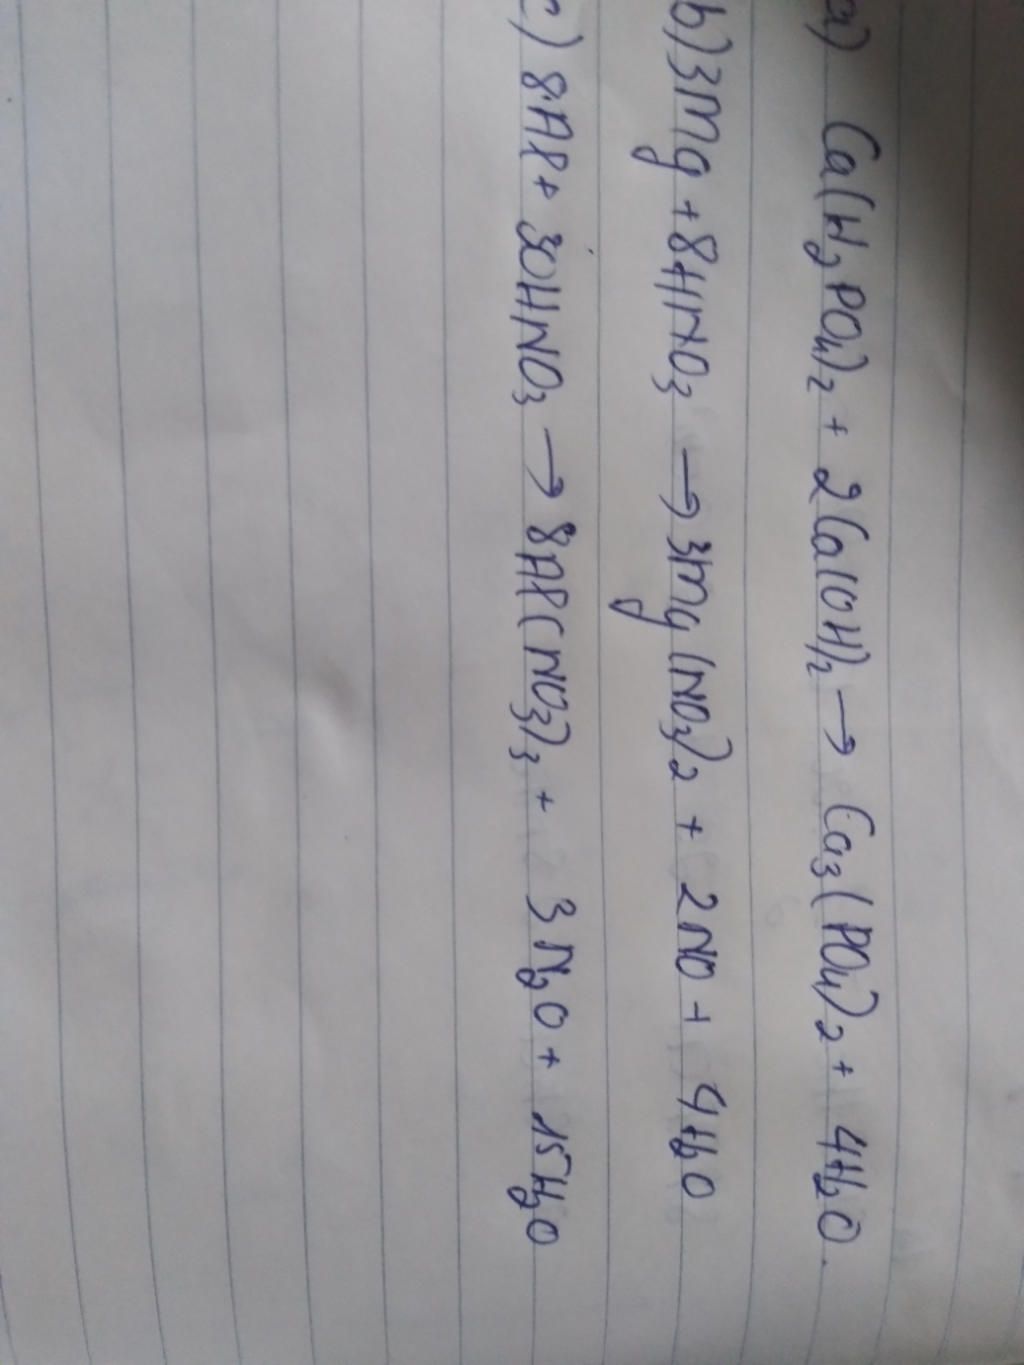 a) Ca(H₂PO₄)₂ + 2Ca(OH)₂ → Ca₃(PO₄)₂ + 4H₂O.
b) 3Mg + 8HNO₃ → 3Mg(NO₃)₂ + 2NO + 4H₂O
c) 8Al + 30HNO₃ → 8Al(NO₃)₃ + 3N₂O + 15H₂O